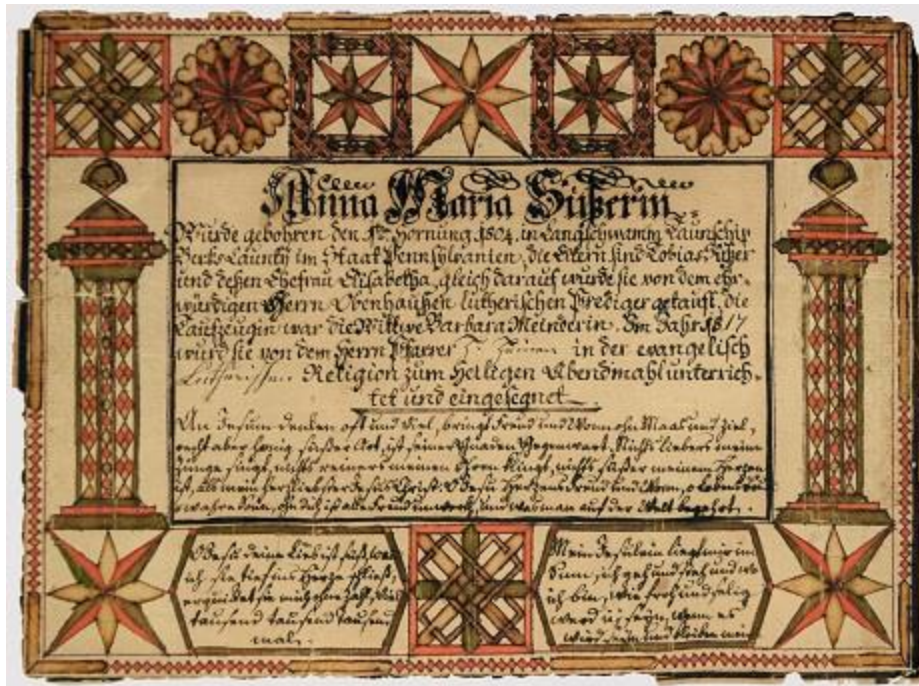 Anna Maria Süßerin
Wurde gebohren den 1t. Hornung 1804, in Langschwamm Taunschip
Berks Caunty im Staat Pennsylvanien, die Eltern sind Tobias
und deßen Ehefrau Elisabetha, gleich darauf wurde sie von dem ehr-
würdigen Herrn Obenhaußen lutherischen Prediger getauft, die
Taufzeugin war die Wittwe Barbara Meinderin. Im Jahr 1817
wurd sie von dem Herrn Pfarrer in der evangelisch
Lutherischen Religion zum Heiligen Abendmahl unterrich-
tet und eingesegnet.
An Jesum denken oft und viel, bringt Freud und Wonn ohn Maas und Ziel,
recht aber honig süßer Art, ist seiner Gnaden Gegenwart. Nichts liebers meine
Zunge singt, nichts reiners meinen Ohren klingt, nichts süßer meinem Herzen
ist, als mein herzliebster Jesus Christ. O Jesu Herzens Freud und Wonn, o
wahre Sonn, und was man auf der Welt begehrt.
O Jesu deine Lieb ist süß, wann
ich sie tief ins Herze schließ,
erquicket sie mich ohne Zahl, viel
tausend tausend tausend
mal.
Mein Jesulein liegt mir im
Sinn, ich geh und steh und wo
ich bin, wie froh und selig
werd ich seyn, wenn es
wird seyn und bleiben mein